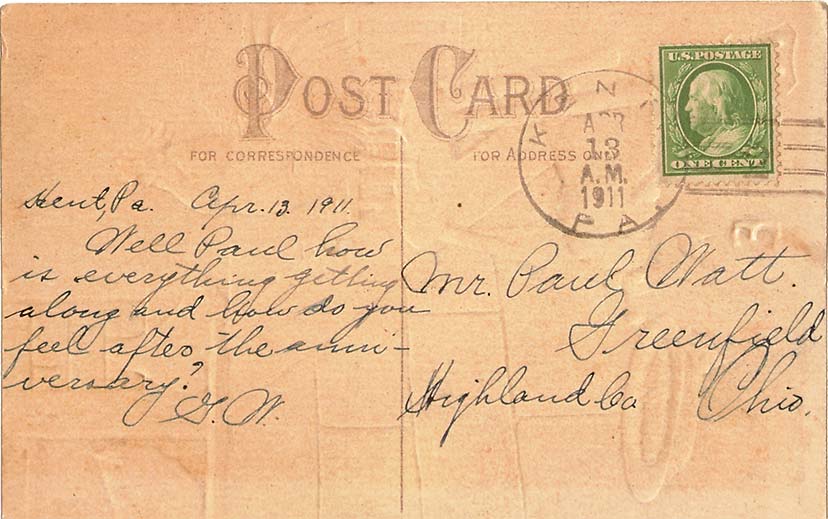 POST CARD
FOR CORRESPONDENCE
FOR ADDRESS ONLY
U.S. POSTAGE
ONE CENT
APR
13
A.M.
1911
PA.
Kent, Pa. Apr. 13. 1911.
Well Paul how
is everything getting
along and how do you
feel after the anni-
versary?
G. W.
Mr. Paul Watt.
Greenfield
Highland Co Ohio.